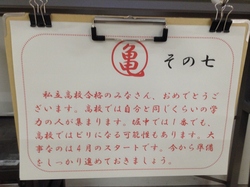 亀
その七
私立高校合格のみなさん、おめでとうご
ざいます。高校では自分と同じくらいの学
力の人が集まります。城中では1番でも、
高校ではビリになる可能性もあります。大
事なのは4月のスタートです。今から準備
をしっかり進めておきましょう。